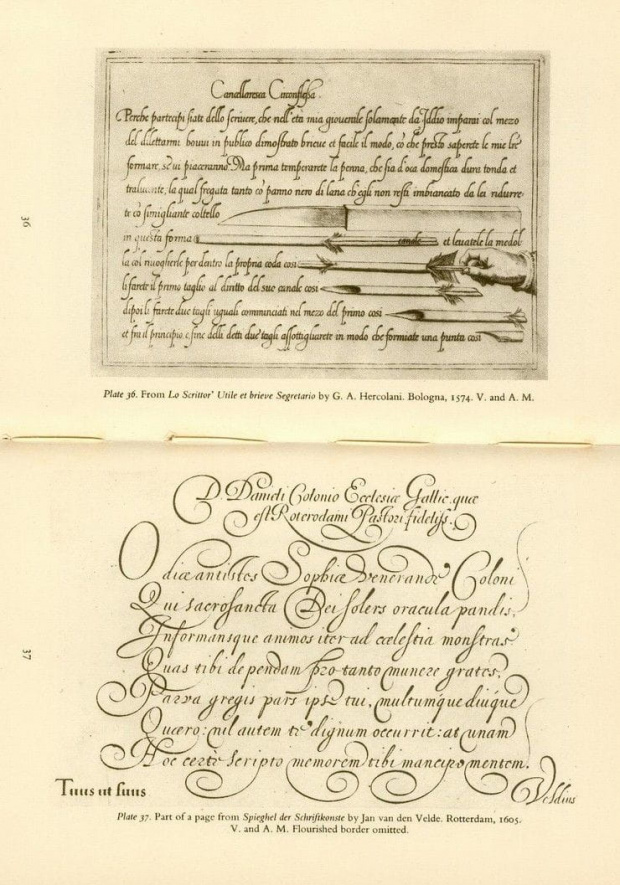 36
Cancellaresca Circonflessa.
Perche partecipi siate dello scriuere, che nell'età mia giouenile solamente da Iddio imparai col mezo
del dilettarmi houui in publico dimostrato brieue et facile il modo, cō che presto saperete le mie lr̄e
formare, se ui piaceranno. Ma prima temperarete la penna, che sia d'oca domestica dura tonda et
tralucente, la qual fregata tanto cō panno nero di lana ch'egli non resti imbiancato da lei ridurre-
te cō simigliante coltello
in questa forma canale et leuatele la medol
la col riuogherle per dentro la propria coda cosi
li farete il primo taglio al diritto del suo canale cosi
dipoi li farete due tagli uguali comminciati nel mezo del primo cosi
et fra il principio e fine delli detti due tagli assottigliarete in modo che formiate una punta cosi
Plate 36. From Lo Scrittor' Utile et brieve Segretario by G. A. Hercolani. Bologna, 1574. V. and A. M.
37
D. Danieli Colonio Ecclesiæ Gallic. quæ
est Roterodami Pastori fideliss.
O diæ antistes Sophiæ venerande Coloni
Qui sacrosancta Dei solers oracula pandis,
Informansque animos iter ad cælestia monstras
Quas tibi dependam pro tanto munere grates,
Parva gregis pars ipse tui, multumque diuque
Quæro: nil autem te dignum occurrit: at unam
Hoc certe scripto memorem tibi mancipo mentem.
Tuus ut suus
Veldius
Plate 37. Part of a page from Spieghel der Schrijfkonste by Jan van den Velde. Rotterdam, 1605.
V. and A. M. Flourished border omitted.